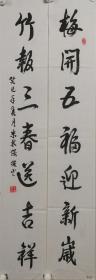 梅開五福迎新歲
竹報三春送吉祥
癸巳年夏月